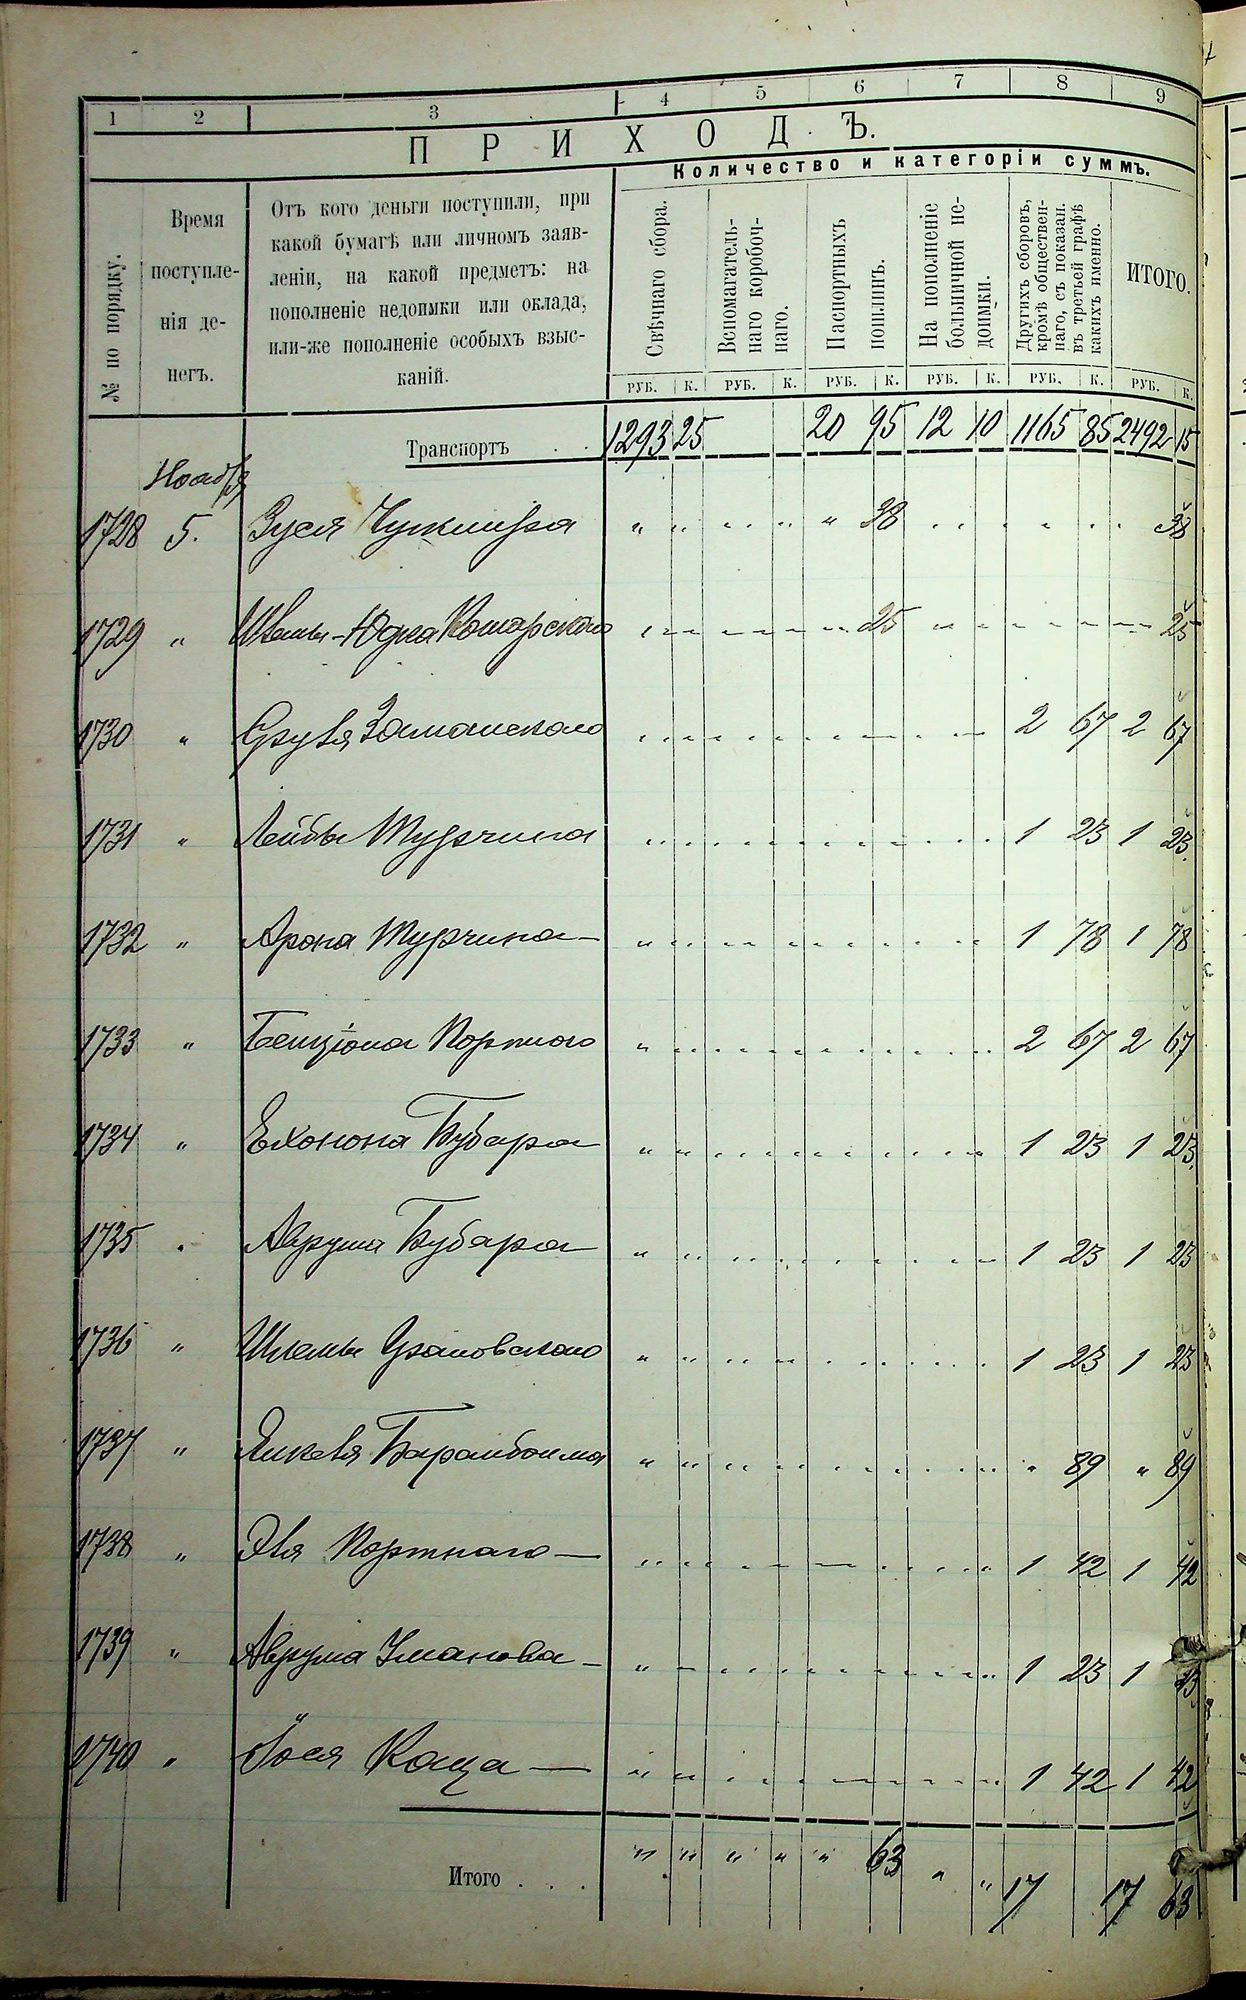 1 2 3 4 5 6 7 8 9
ПРИХОДЪ.
Количество и категоріи суммъ.
№ по порядку.
Время
поступле-
нія де-
негъ.
Отъ кого деньги поступили, при
какой бумагѣ или личномъ заяв-
леніи, на какой предметъ: на
пополненіе недоимки или оклада,
или-же пополненіе особыхъ взыс-
каній.
Свѣчнаго сбора.
Вспомагатель-
наго коробоч-
наго.
Паспортныхъ
пошлинъ.
На пополненіе
больничной не-
доимки.
Другихъ сборовъ,
кромѣ обществен-
наго, съ показан.
въ третьей графѣ
какихъ именно.
ИТОГО.
РУБ. К. РУБ. К. РУБ. К. РУБ. К. РУБ. К. РУБ. К.
Транспортъ . . 1293 25 20 95 12 10 1165 85 2492 15
Ноября
1728 5. Зуся " " " " " 38 38
1729 " Юдка Комарского 25 25
1730 " 2 67 2 67
1731 " Лейбы Турчина 1 23 1 23
1732 " Арона Турчина — 1 78 1 78
1733 " Бенціона Портного 2 67 2 67
1734 " Бубара 1 23 1 23
1735 " Аврума Бубара 1 23 1 23
1736 " Шлемы 1 23 1 23
1737 " Янкеля Барамбоима " 89 " 89
1738 " Эля Портнаго — 1 42 1 42
1739 " Аврума Уманова — 1 23 1 23
1740 " Іося Каца — 1 42 1 42
Итого . . . " " " " " 63 " " 17 17 63